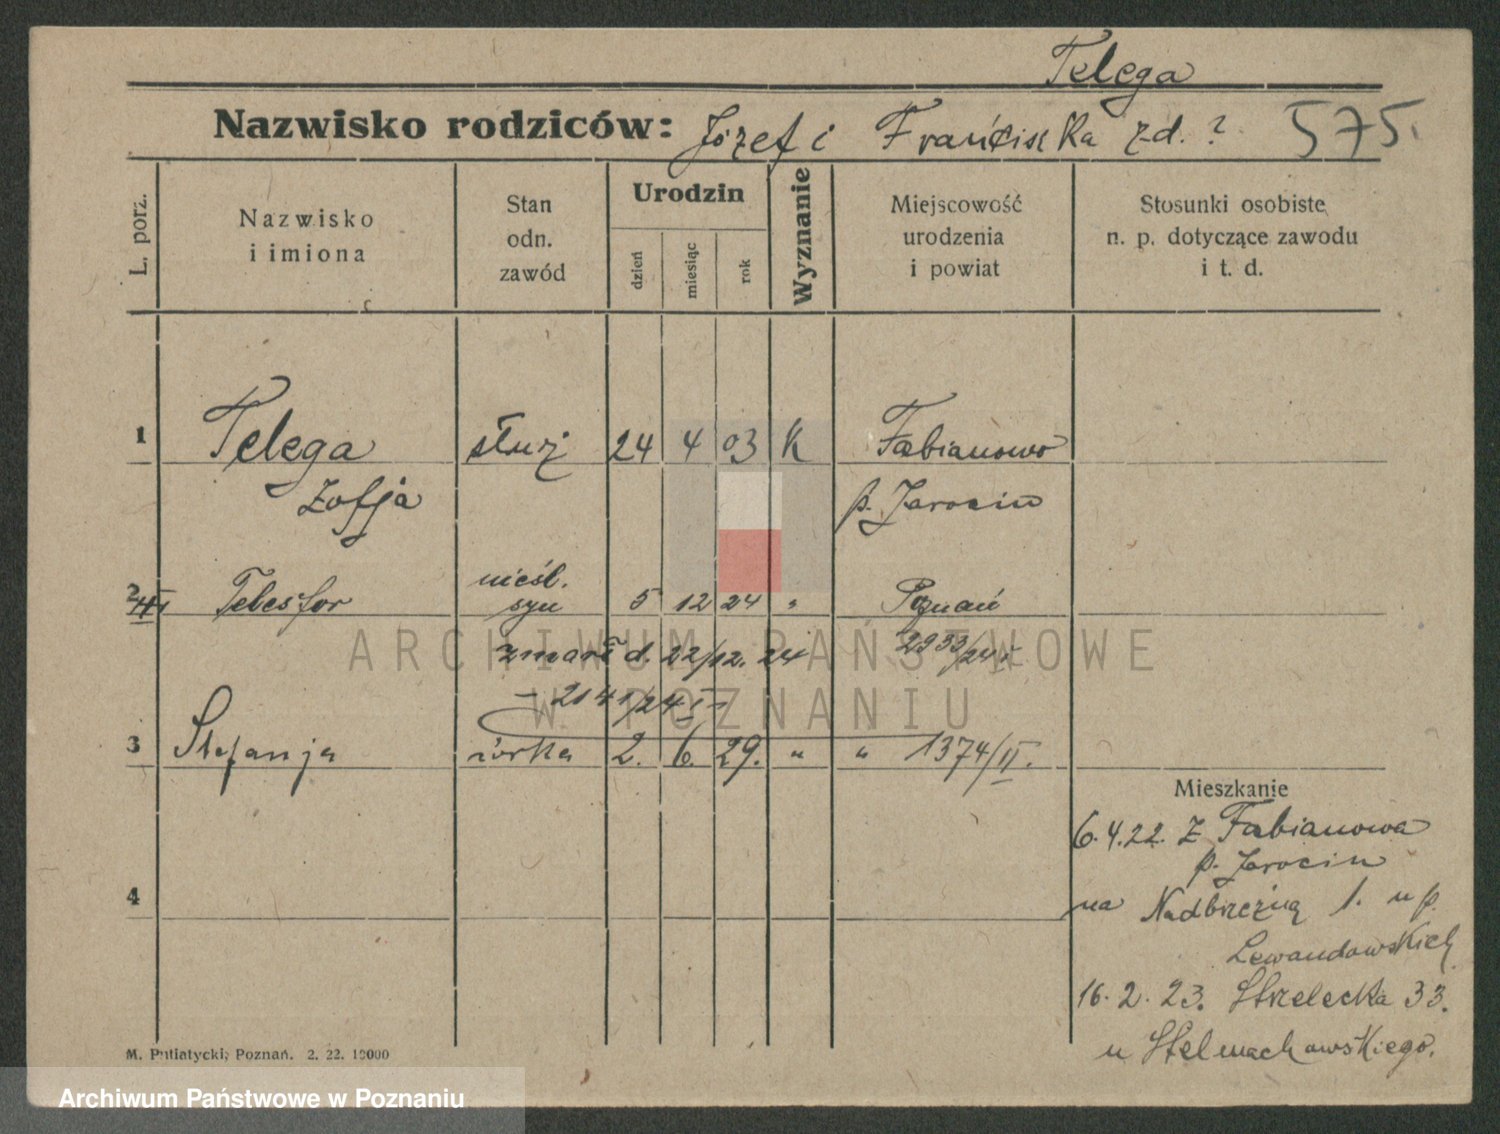 Telega
Nazwisko rodziców: Józef i Franciszka zd. ? 575.
L. porz.
Nazwisko
i imiona
Stan
odn.
zawód
Urodzin
dzień
miesiąc
rok
Wyznanie
Miejscowość
urodzenia
i powiat
Stosunki osobiste
n. p. dotyczące zawodu
i t. d.
1 Telega służ 24 4 03 K Fabianowo
Zofja p. Jarocin
nieśl.
2 Telesfor syn 5 12 24 " Poznań
zmarł d. 22/12. 24 2933/24
2141/24
3 Stefanja córka 2. 6. 29. " " 1374/II.
Mieszkanie
6.4.22. Z Fabianowa
p. Jarocin
4
na Nadbrzeżną 1. u p.
Lewandowskich
16.2.23. Strzelecka 33.
u Stelmachowskiego.
M. Putiatycki, Poznań. 2. 22. 10000
ARCHIWUM PAŃSTWOWE
W POZNANIU
Archiwum Państwowe w Poznaniu